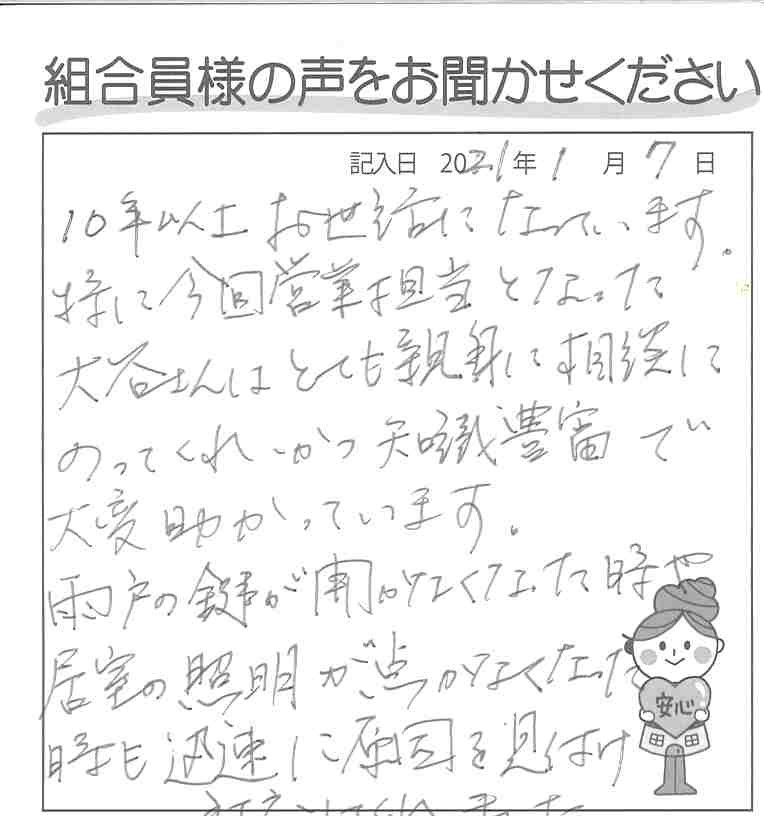 組合員様の声をお聞かせください
記入日 2021年 1月 7日
10年以上お世話になっています。
特に今回営業担当となった
大谷さんはとても親身に相談に
のってくれ、かつ知識豊富で
大変助かっています。
雨戸の鍵が開かなくなった時や
居室の照明が点かなくなった
時も迅速に原因を見付け
安心